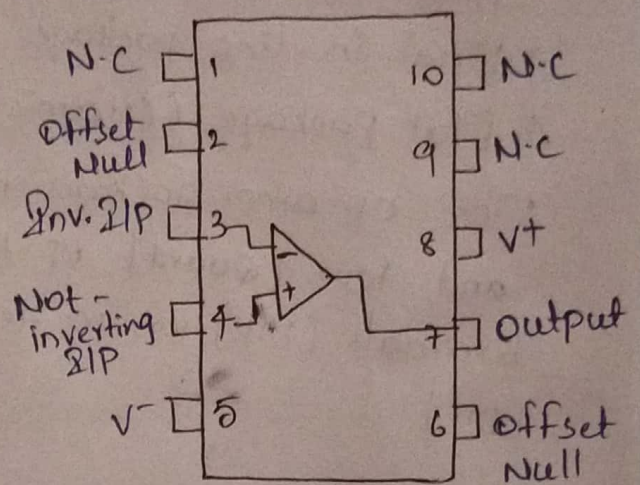 N.C 1
Offset
Null 2
Inv. I/P 3
-
+
Not-
inverting
I/P 4
V- 5
10 N.C
9 N.C
8 V+
7 Output
6 Offset
Null